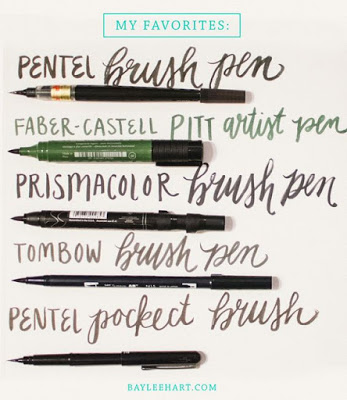 MY FAVORITES:
PENTEL brush pen
FABER-CASTELL PITT artist pen
PRISMACOLOR brush pen
TOMBOW brush pen
PENTEL pockect brush
BAYLEEHART.COM